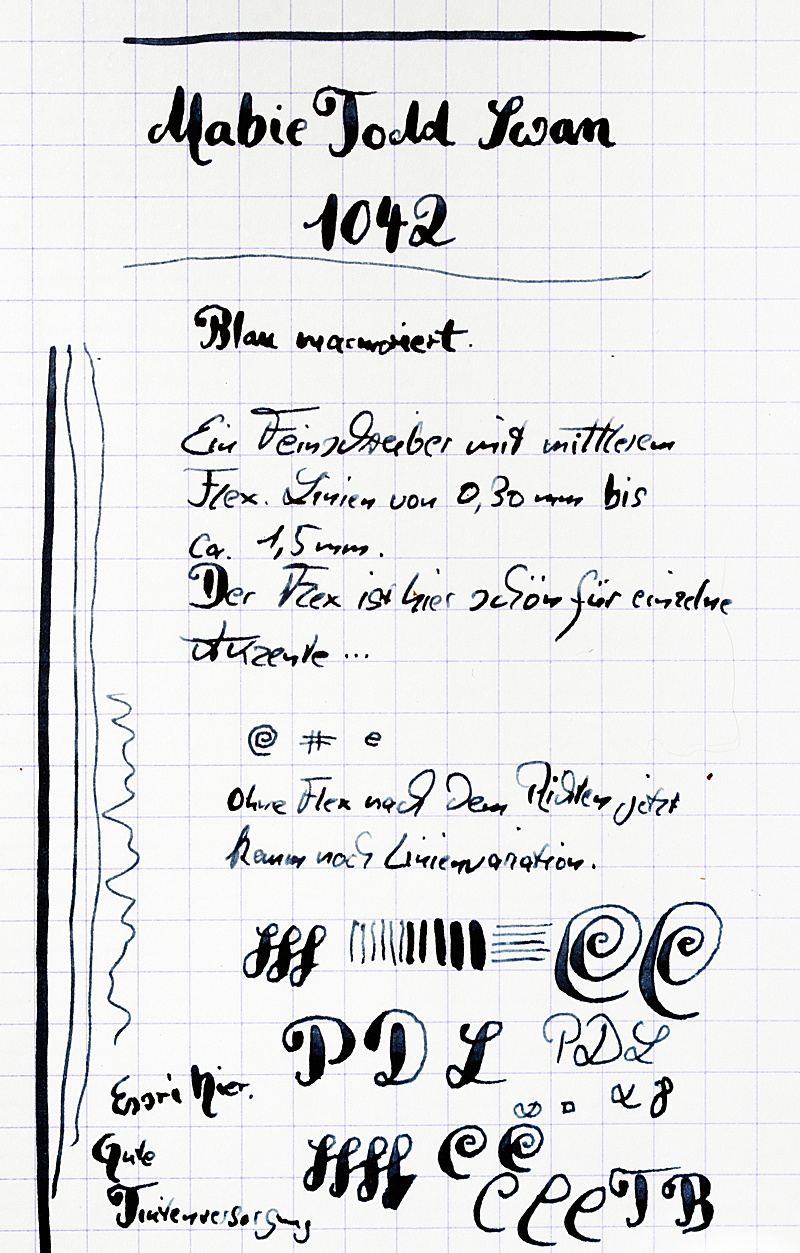 Mabie Todd Swan
1042
Blau marmoriert.
Ein Feinschreiber mit mittlerem
Flex. Linien von 0,30 mm bis
ca. 1,5 mm.
Der Flex ist hier schön für einzelne
Akzente ...
@ # e
Ohne Flex nach dem Richten jetzt
kaum noch Linienvariation.
fff CC
P D L P D L
Essri hier.
∞ □ α 8
Gute
ffff C C
Tintenversorgung
C C C T B